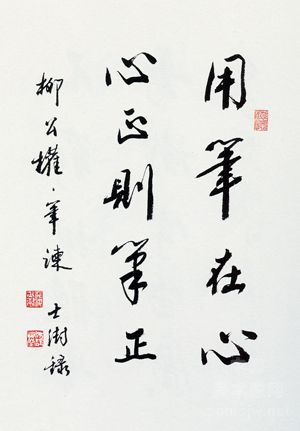 用筆在心
心正則筆正
柳公權、筆諫
士澍錄